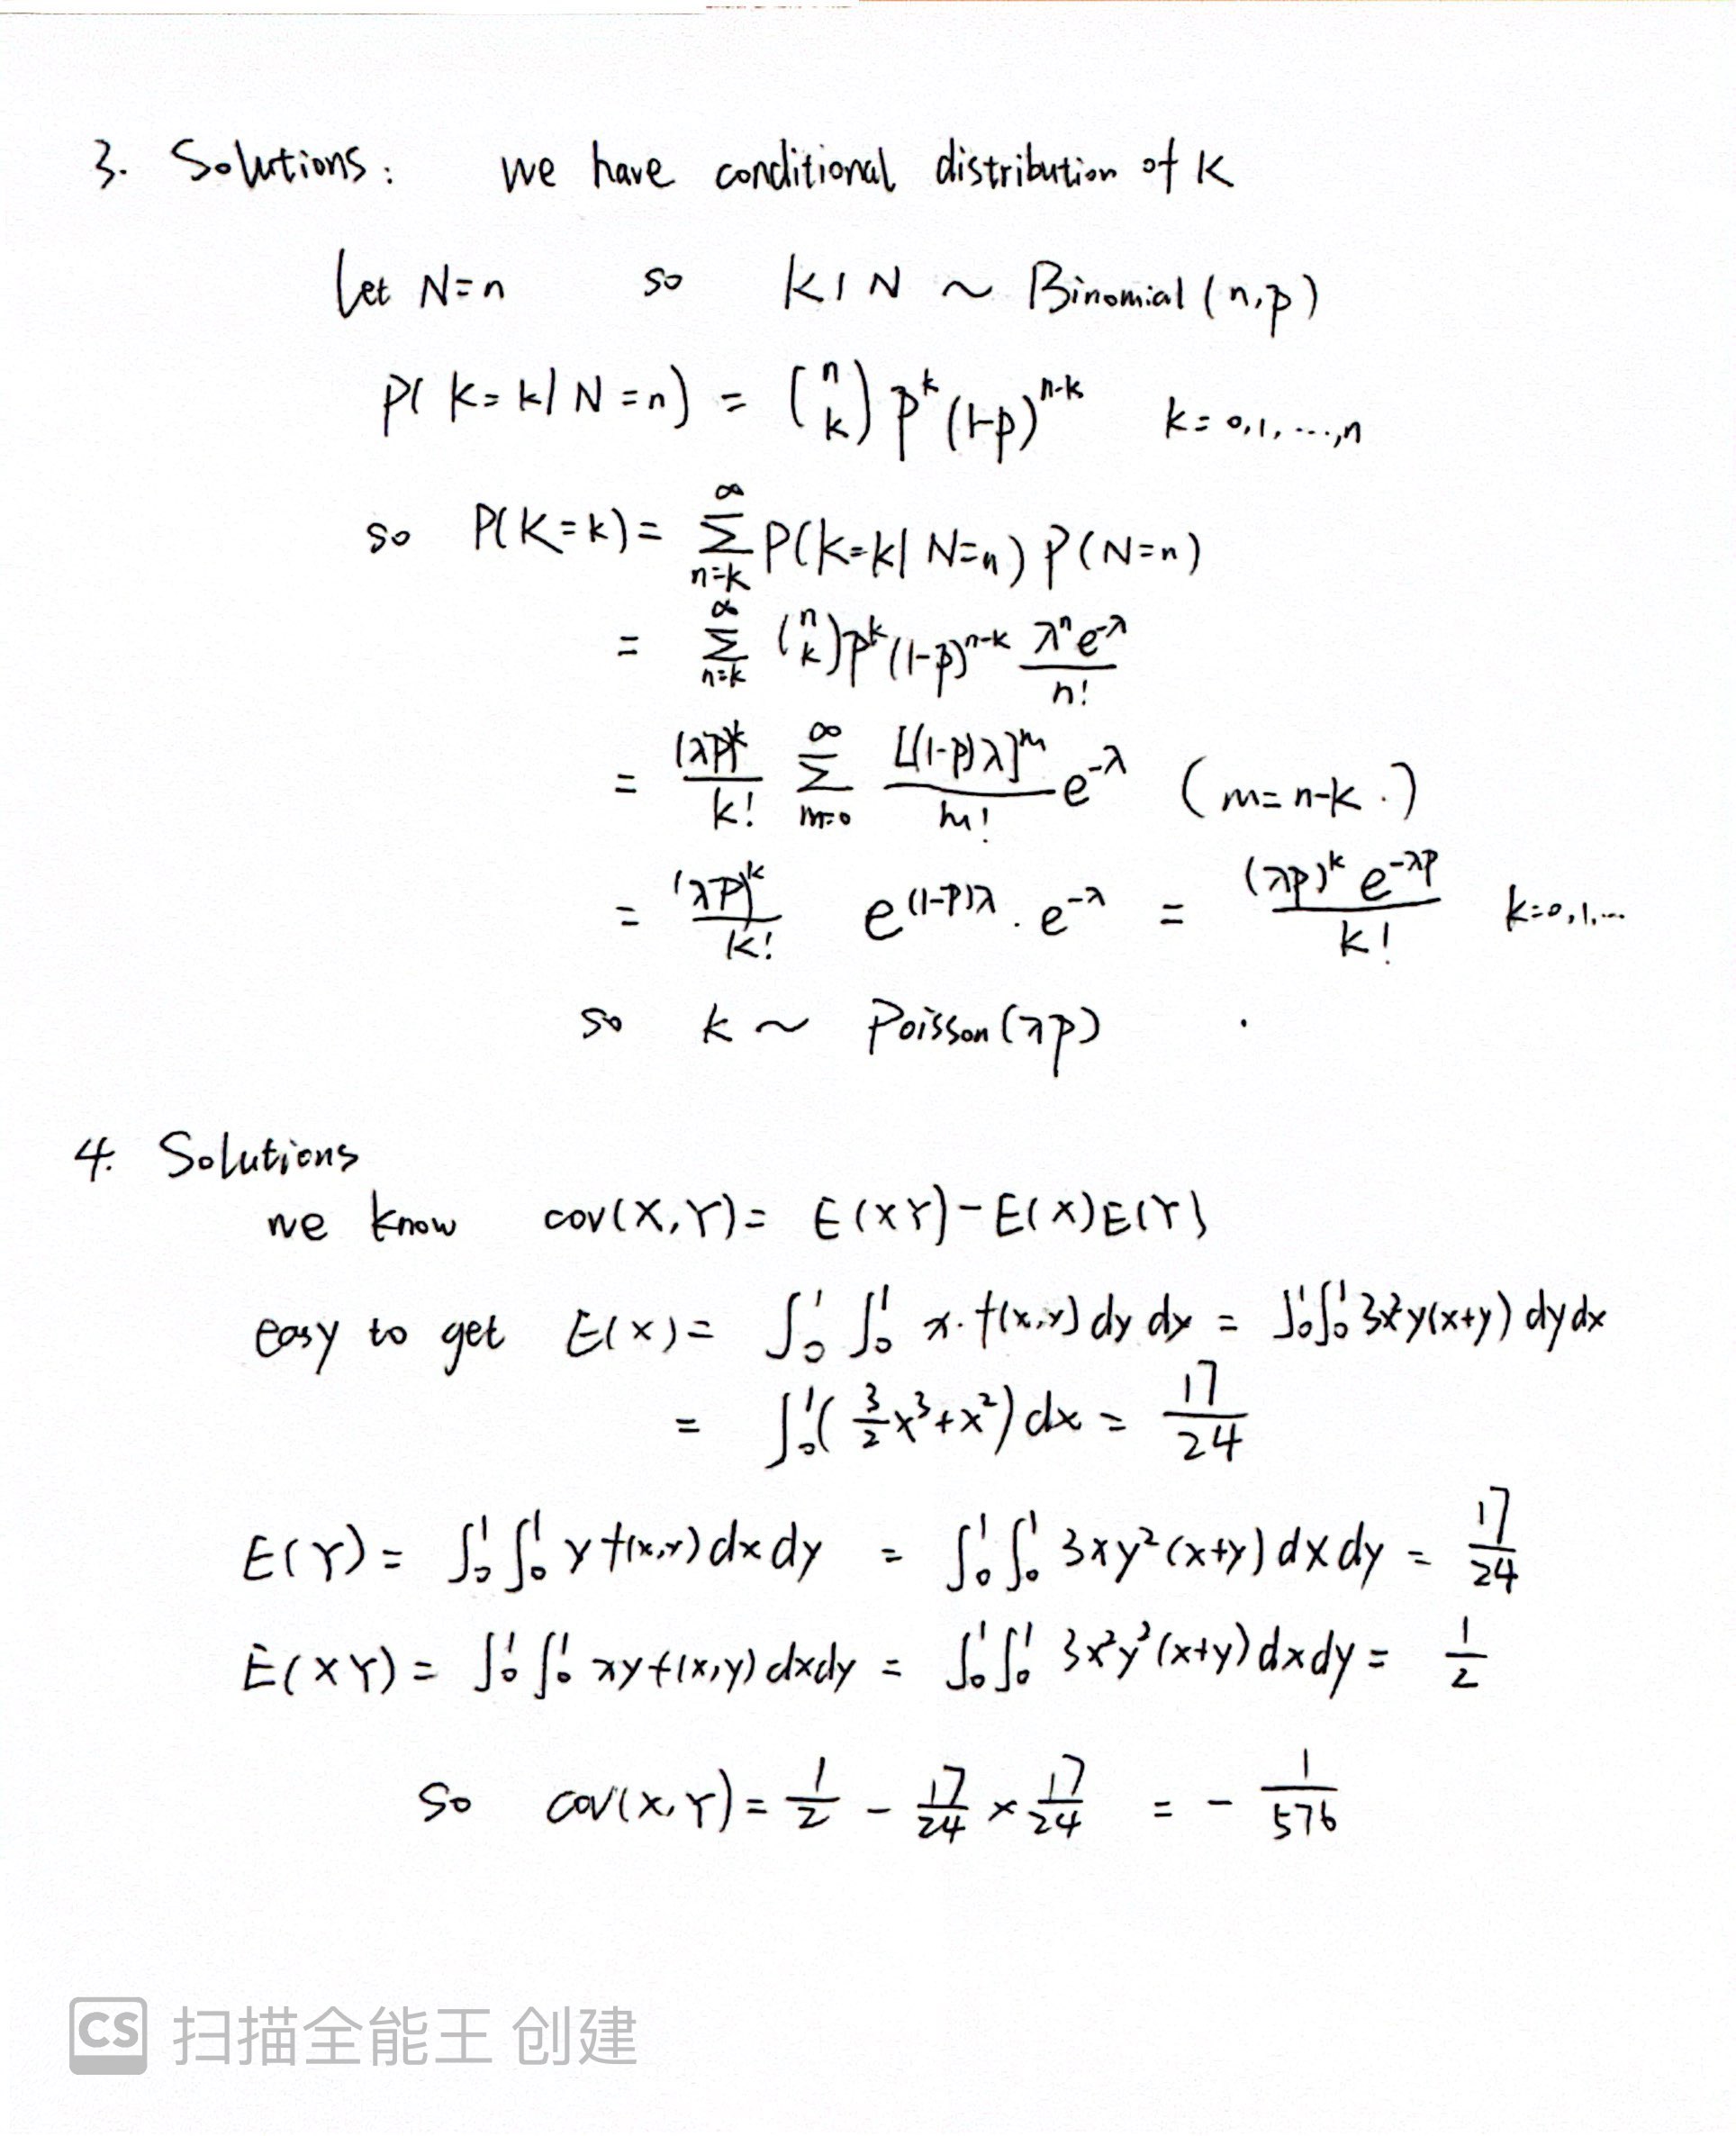 3. Solutions: we have conditional distribution of K
Let N=n so K|N ~ Binomial(n,p)
P(K=k|N=n) = (n k) p^k (1-p)^{n-k} k=0,1,...,n
so P(K=k) = ∑_{n=k}^{∞} P(K=k|N=n) P(N=n)
= ∑_{n=k}^{∞} (n k) p^k (1-p)^{n-k} \frac{λ^n e^{-λ}}{n!}
= \frac{(λp)^k}{k!} ∑_{m=0}^{∞} \frac{[(1-p)λ]^m}{m!} e^{-λ} (m=n-k.)
= \frac{(λp)^k}{k!} e^{(1-p)λ} · e^{-λ} = \frac{(λp)^k e^{-λp}}{k!} k=0,1,...
so k ~ Poisson(λp)
4. Solutions
we know cov(X,Y) = E(XY) - E(X)E(Y)
easy to get E(X) = ∫_0^1 ∫_0^1 x·f(x,y) dy dx = ∫_0^1 ∫_0^1 3x²y(x+y) dy dx
= ∫_0^1 (\frac{3}{2}x³+x²) dx = \frac{17}{24}
E(Y) = ∫_0^1 ∫_0^1 y f(x,y) dx dy = ∫_0^1 ∫_0^1 3xy²(x+y) dx dy = \frac{17}{24}
E(XY) = ∫_0^1 ∫_0^1 xy f(x,y) dxdy = ∫_0^1 ∫_0^1 3x²y²(x+y) dx dy = \frac{1}{2}
So cov(X,Y) = \frac{1}{2} - \frac{17}{24} × \frac{17}{24} = - \frac{1}{576}
CS 扫描全能王 创建